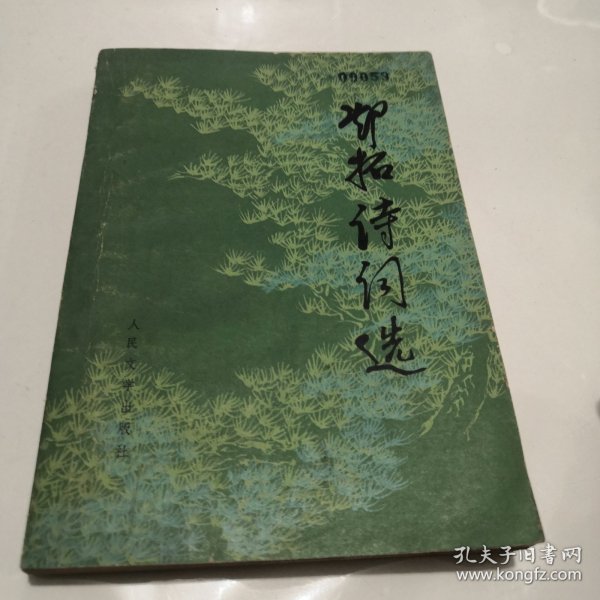 00053
邓拓诗词选
人民文学出版社
孔夫子旧书网
www.kongfz.com